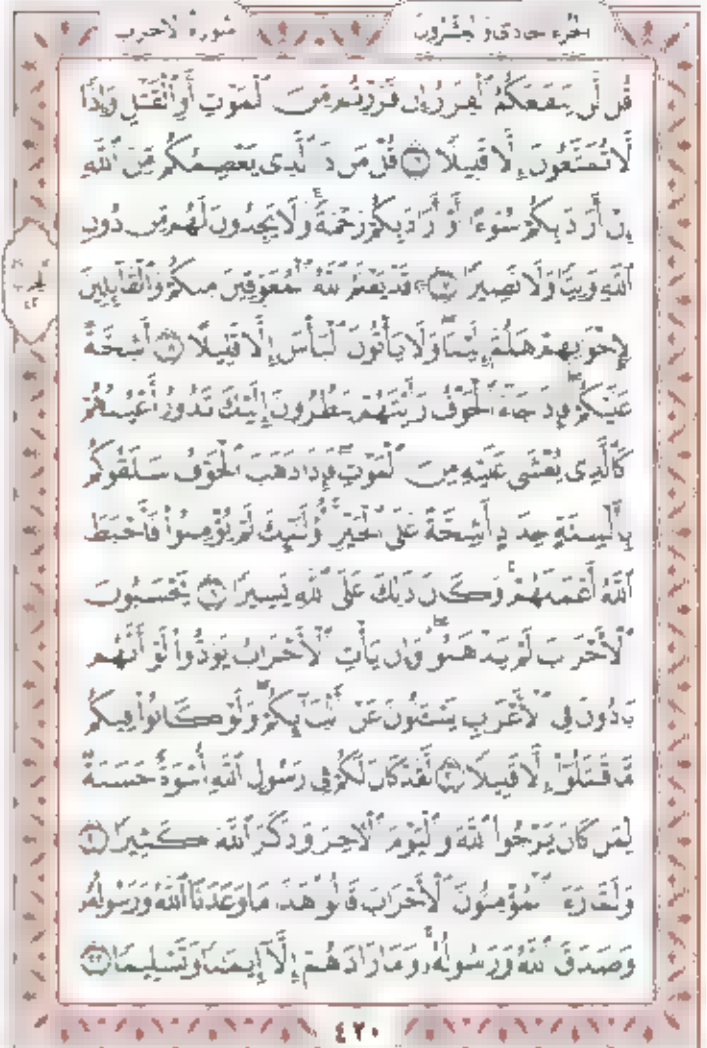 الجزء الحادي والعشرون سورة الأحزاب
قُل لَّن يَنفَعَكُمُ ٱلْفِرَارُ إِن فَرَرْتُم مِّنَ ٱلْمَوْتِ أَوِ ٱلْقَتْلِ وَإِذًا
لَّا تُمَتَّعُونَ إِلَّا قَلِيلًا ١٦ قُلْ مَن ذَا ٱلَّذِى يَعْصِمُكُم مِّنَ ٱللَّهِ
إِنْ أَرَادَ بِكُمْ سُوٓءًا أَوْ أَرَادَ بِكُمْ رَحْمَةً ۚ وَلَا يَجِدُونَ لَهُم مِّن دُونِ
ٱللَّهِ وَلِيًّا وَلَا نَصِيرًا ١٧ ۞ قَدْ يَعْلَمُ ٱللَّهُ ٱلْمُعَوِّقِينَ مِنكُمْ وَٱلْقَآئِلِينَ
لِإِخْوَٰنِهِمْ هَلُمَّ إِلَيْنَا ۖ وَلَا يَأْتُونَ ٱلْبَأْسَ إِلَّا قَلِيلًا ١٨ أَشِحَّةً
عَلَيْكُمْ ۖ فَإِذَا جَآءَ ٱلْخَوْفُ رَأَيْتَهُمْ يَنظُرُونَ إِلَيْكَ تَدُورُ أَعْيُنُهُمْ
كَٱلَّذِى يُغْشَىٰ عَلَيْهِ مِنَ ٱلْمَوْتِ ۖ فَإِذَا ذَهَبَ ٱلْخَوْفُ سَلَقُوكُم
بِأَلْسِنَةٍ حِدَادٍ أَشِحَّةً عَلَى ٱلْخَيْرِ ۚ أُو۟لَٰٓئِكَ لَمْ يُؤْمِنُوا۟ فَأَحْبَطَ
ٱللَّهُ أَعْمَٰلَهُمْ ۚ وَكَانَ ذَٰلِكَ عَلَى ٱللَّهِ يَسِيرًا ١٩ يَحْسَبُونَ
ٱلْأَحْزَابَ لَمْ يَذْهَبُوا۟ ۖ وَإِن يَأْتِ ٱلْأَحْزَابُ يَوَدُّوا۟ لَوْ أَنَّهُم
بَادُونَ فِى ٱلْأَعْرَابِ يَسْـَٔلُونَ عَنْ أَنۢبَآئِكُمْ ۖ وَلَوْ كَانُوا۟ فِيكُم
مَّا قَٰتَلُوٓا۟ إِلَّا قَلِيلًا ٢٠ لَّقَدْ كَانَ لَكُمْ فِى رَسُولِ ٱللَّهِ أُسْوَةٌ حَسَنَةٌ
لِّمَن كَانَ يَرْجُوا۟ ٱللَّهَ وَٱلْيَوْمَ ٱلْـَٔاخِرَ وَذَكَرَ ٱللَّهَ كَثِيرًا ٢١
وَلَمَّا رَءَا ٱلْمُؤْمِنُونَ ٱلْأَحْزَابَ قَالُوا۟ هَٰذَا مَا وَعَدَنَا ٱللَّهُ وَرَسُولُهُۥ
وَصَدَقَ ٱللَّهُ وَرَسُولُهُۥ ۚ وَمَا زَادَهُمْ إِلَّآ إِيمَٰنًا وَتَسْلِيمًا ٢٢
٤٢٠